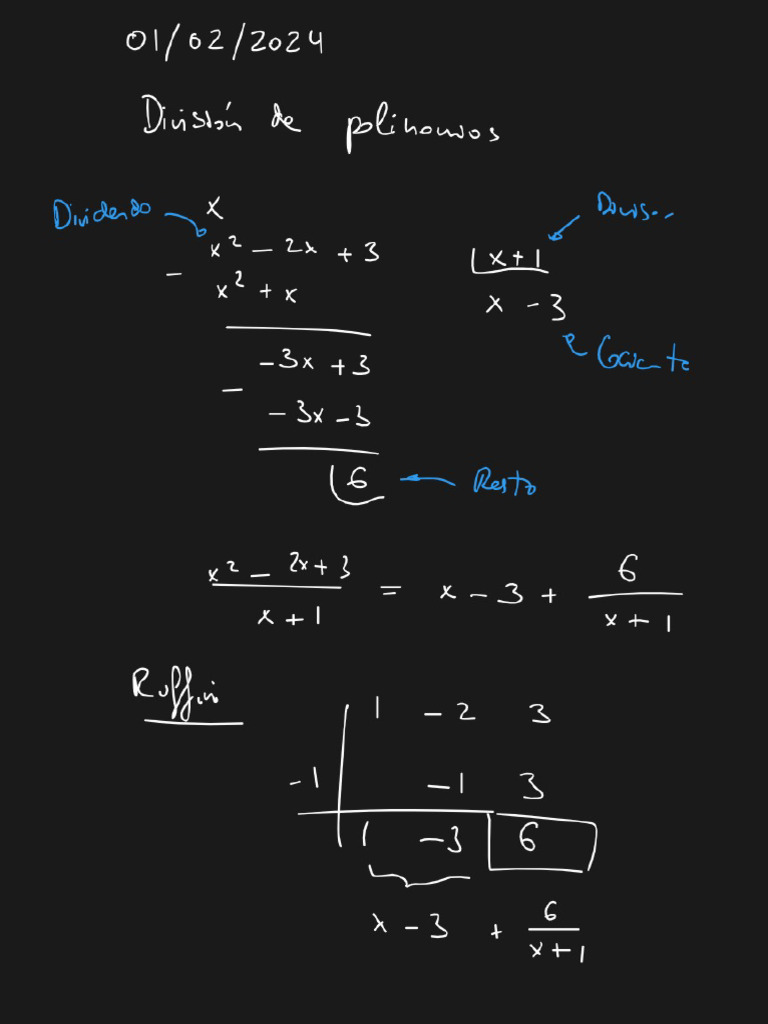 01/02/2024
División de polinomios
x
Dividendo
x² - 2x + 3
x + 1
- x² + x
x - 3
- 3x + 3
Cociente
- - 3x - 3
6
Resto
x² - 2x + 3 / x + 1 = x - 3 + 6 / x + 1
Ruffini
1 - 2 3
- 1 - 1 3
1 - 3 6
x - 3 + 6 / x + 1